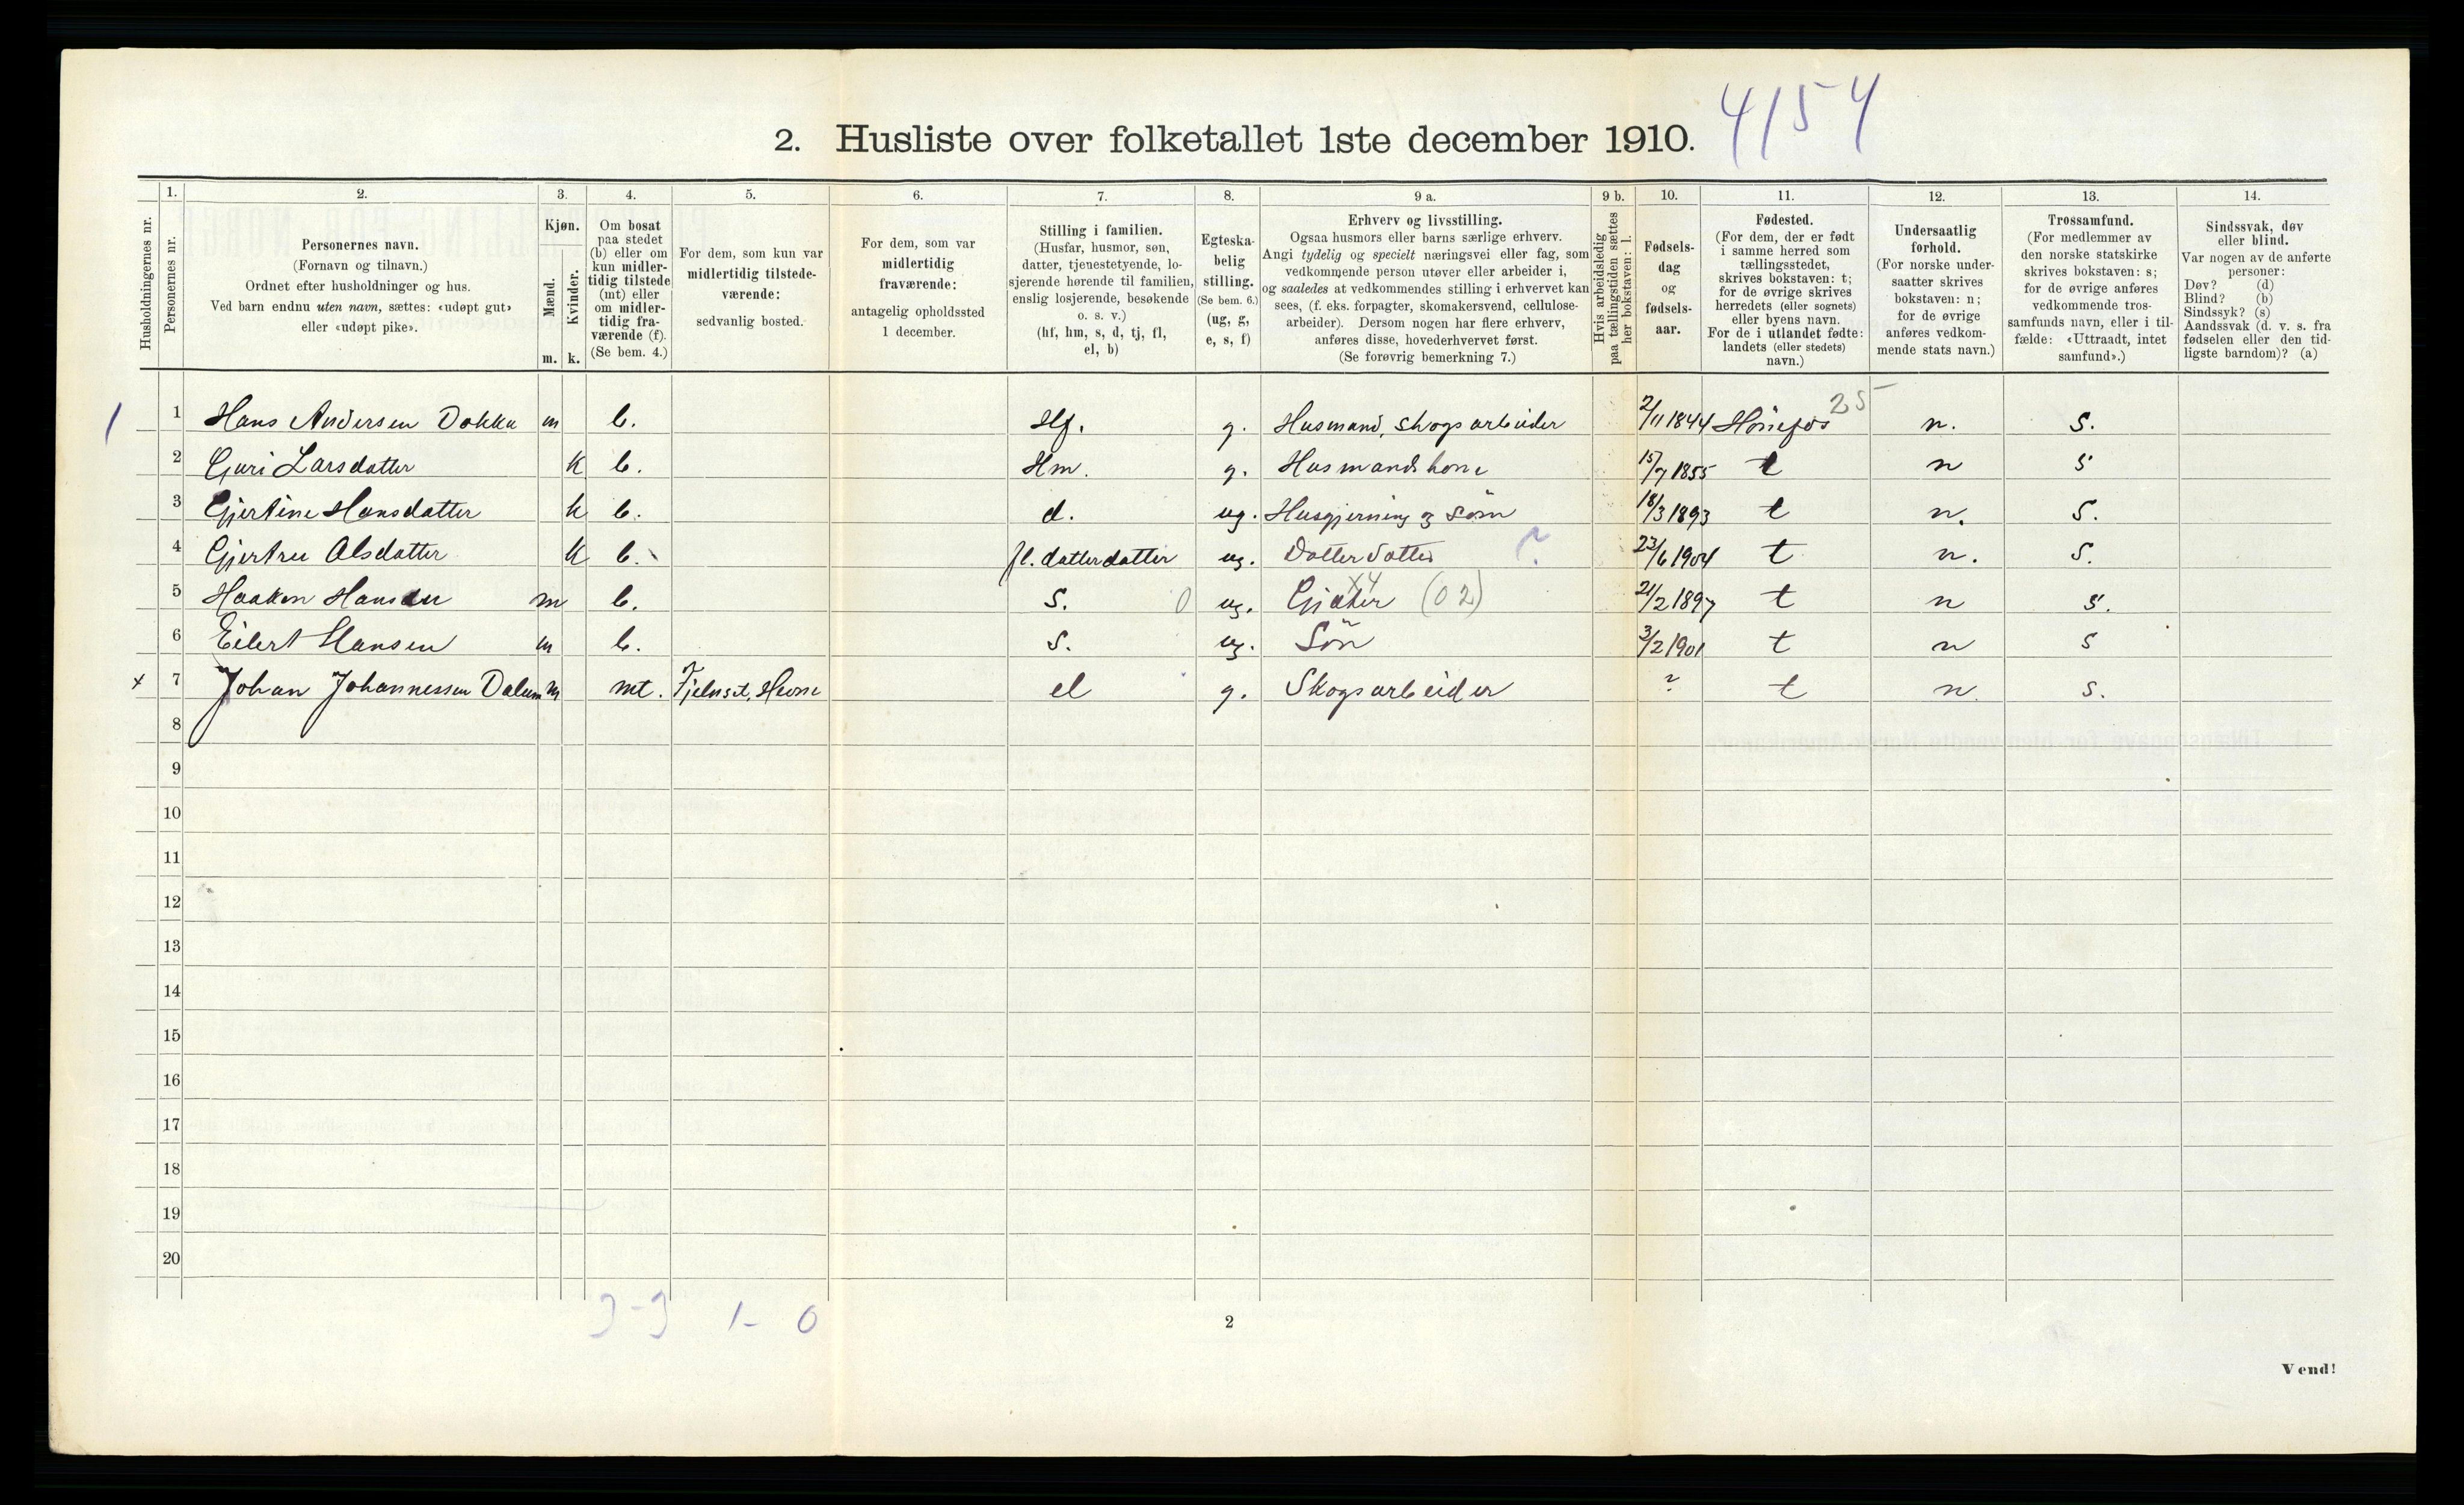 2. Husliste over folketallet 1ste december 1910. 4154
Husholdningernes nr.
1.
Personernes nr.
2.
Personernes navn.
(Fornavn og tilnavn.)
Ordnet efter husholdninger og hus.
Ved barn endnu uten navn, sættes: «udøpt gut»
eller «udøpt pike».
3.
Kjøn.
Mænd.
Kvinder.
m. k.
4.
Om bosat
paa stedet
(b) eller om
kun midler-
tidig tilstede
(mt) eller
om midler-
tidig fra-
værende (f).
(Se bem. 4.)
5.
For dem, som kun var
midlertidig tilstede-
værende:
sedvanlig bosted.
6.
For dem, som var
midlertidig
fraværende:
antagelig opholdssted
1 december.
7.
Stilling i familien.
(Husfar, husmor, søn,
datter, tjenestetyende, lo-
sjerende hørende til familien,
enslig losjerende, besøkende
o. s. v.)
(hf, hm, s, d, tj, fl,
el, b)
8.
Egteska-
belig
stilling.
(Se bem. 6.)
(ug, g,
e, s, f)
9 a.
Erhverv og livsstilling.
Ogsaa husmors eller barns særlige erhverv.
Angi tydelig og specielt næringsvei eller fag, som
vedkommende person utøver eller arbeider i,
og saaledes at vedkommendes stilling i erhvervet kan
sees, (f. eks. forpagter, skomakersvend, cellulose-
arbeider). Dersom nogen har flere erhverv,
anføres disse, hovederhvervet først.
(Se forøvrig bemerkning 7.)
9 b.
Hvis arbeidsledig
paa tællingstiden sættes
her bokstaven: l.
10.
Fødsels-
dag
og
fødsels-
aar.
11.
Fødested.
(For dem, der er født
i samme herred som
tællingsstedet,
skrives bokstaven: t;
for de øvrige skrives
herredets (eller sognets)
eller byens navn.
For de i utlandet fødte:
landets (eller stedets)
navn.)
12.
Undersaatlig
forhold.
(For norske under-
saatter skrives
bokstaven: n;
for de øvrige
anføres vedkom-
mende stats navn.)
13.
Trossamfund.
(For medlemmer av
den norske statskirke
skrives bokstaven: s;
for de øvrige anføres
vedkommende tros-
samfunds navn, eller i til-
fælde: «Uttraadt, intet
samfund».)
14.
Sindssvak, døv
eller blind.
Var nogen av de anførte
personer:
Døv? (d)
Blind? (b)
Sindssyk? (s)
Aandssvak (d. v. s. fra
fødselen eller den tid-
ligste barndom)? (a)
25
1 1 Hans Andersen Dokka m b. Hf. g. Husmand, skogsarbeider 2/11 1844 Hønefos n. s.
2 Guri Larsdatter k b. Hm. g. Husmandskone 15/7 1855 t n s
3 Gjertine Hansdatter k b. d. ug. Husgjerning og søm 18/3 1893 t n. s.
4 Gjertru Olsdatter k b. fl. datterdatter ug. Datterdatter ? 23/6 1904 t n. s.
5 Haaken Hansen m b. s. 0 ug. Gjæter x4 (02) 21/2 1897 t n s.
6 Eilert Hansen m b. s. ug. Søn 3/2 1901 t n s
x 7 Johan Johannessen Dalum m mt. Fjelnset, Hevne el g. Skogsarbeider ? t n. s.
8
9
10
11
12
13
14
15
16
17
18
19
20
3-3 1-0
2
Vend!